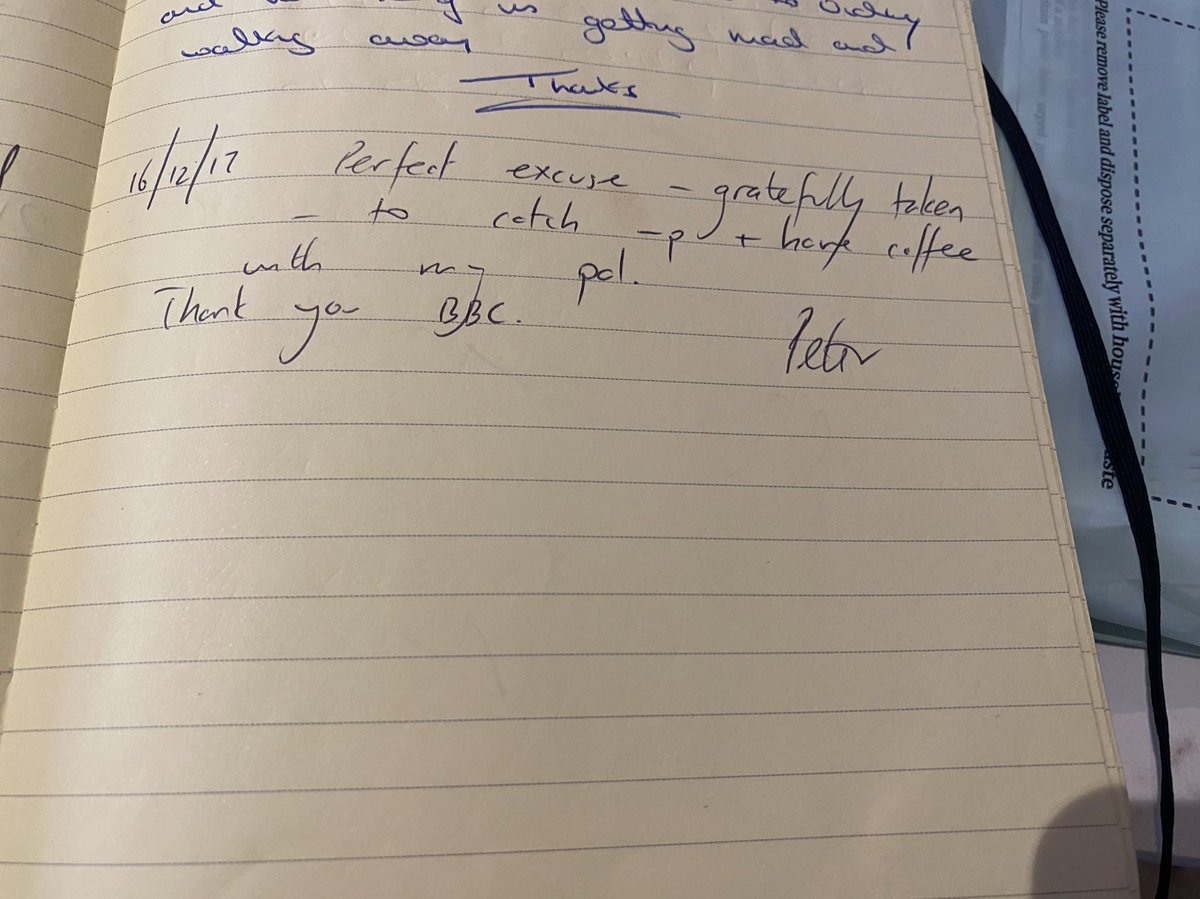 and us getting mad and
walking away
Thanks
16/12/17 Perfect excuse - gratefully taken
- to catch -p + have coffee
with my pal.
Thank you BBC.
Peter
Please remove label and dispose separately with house